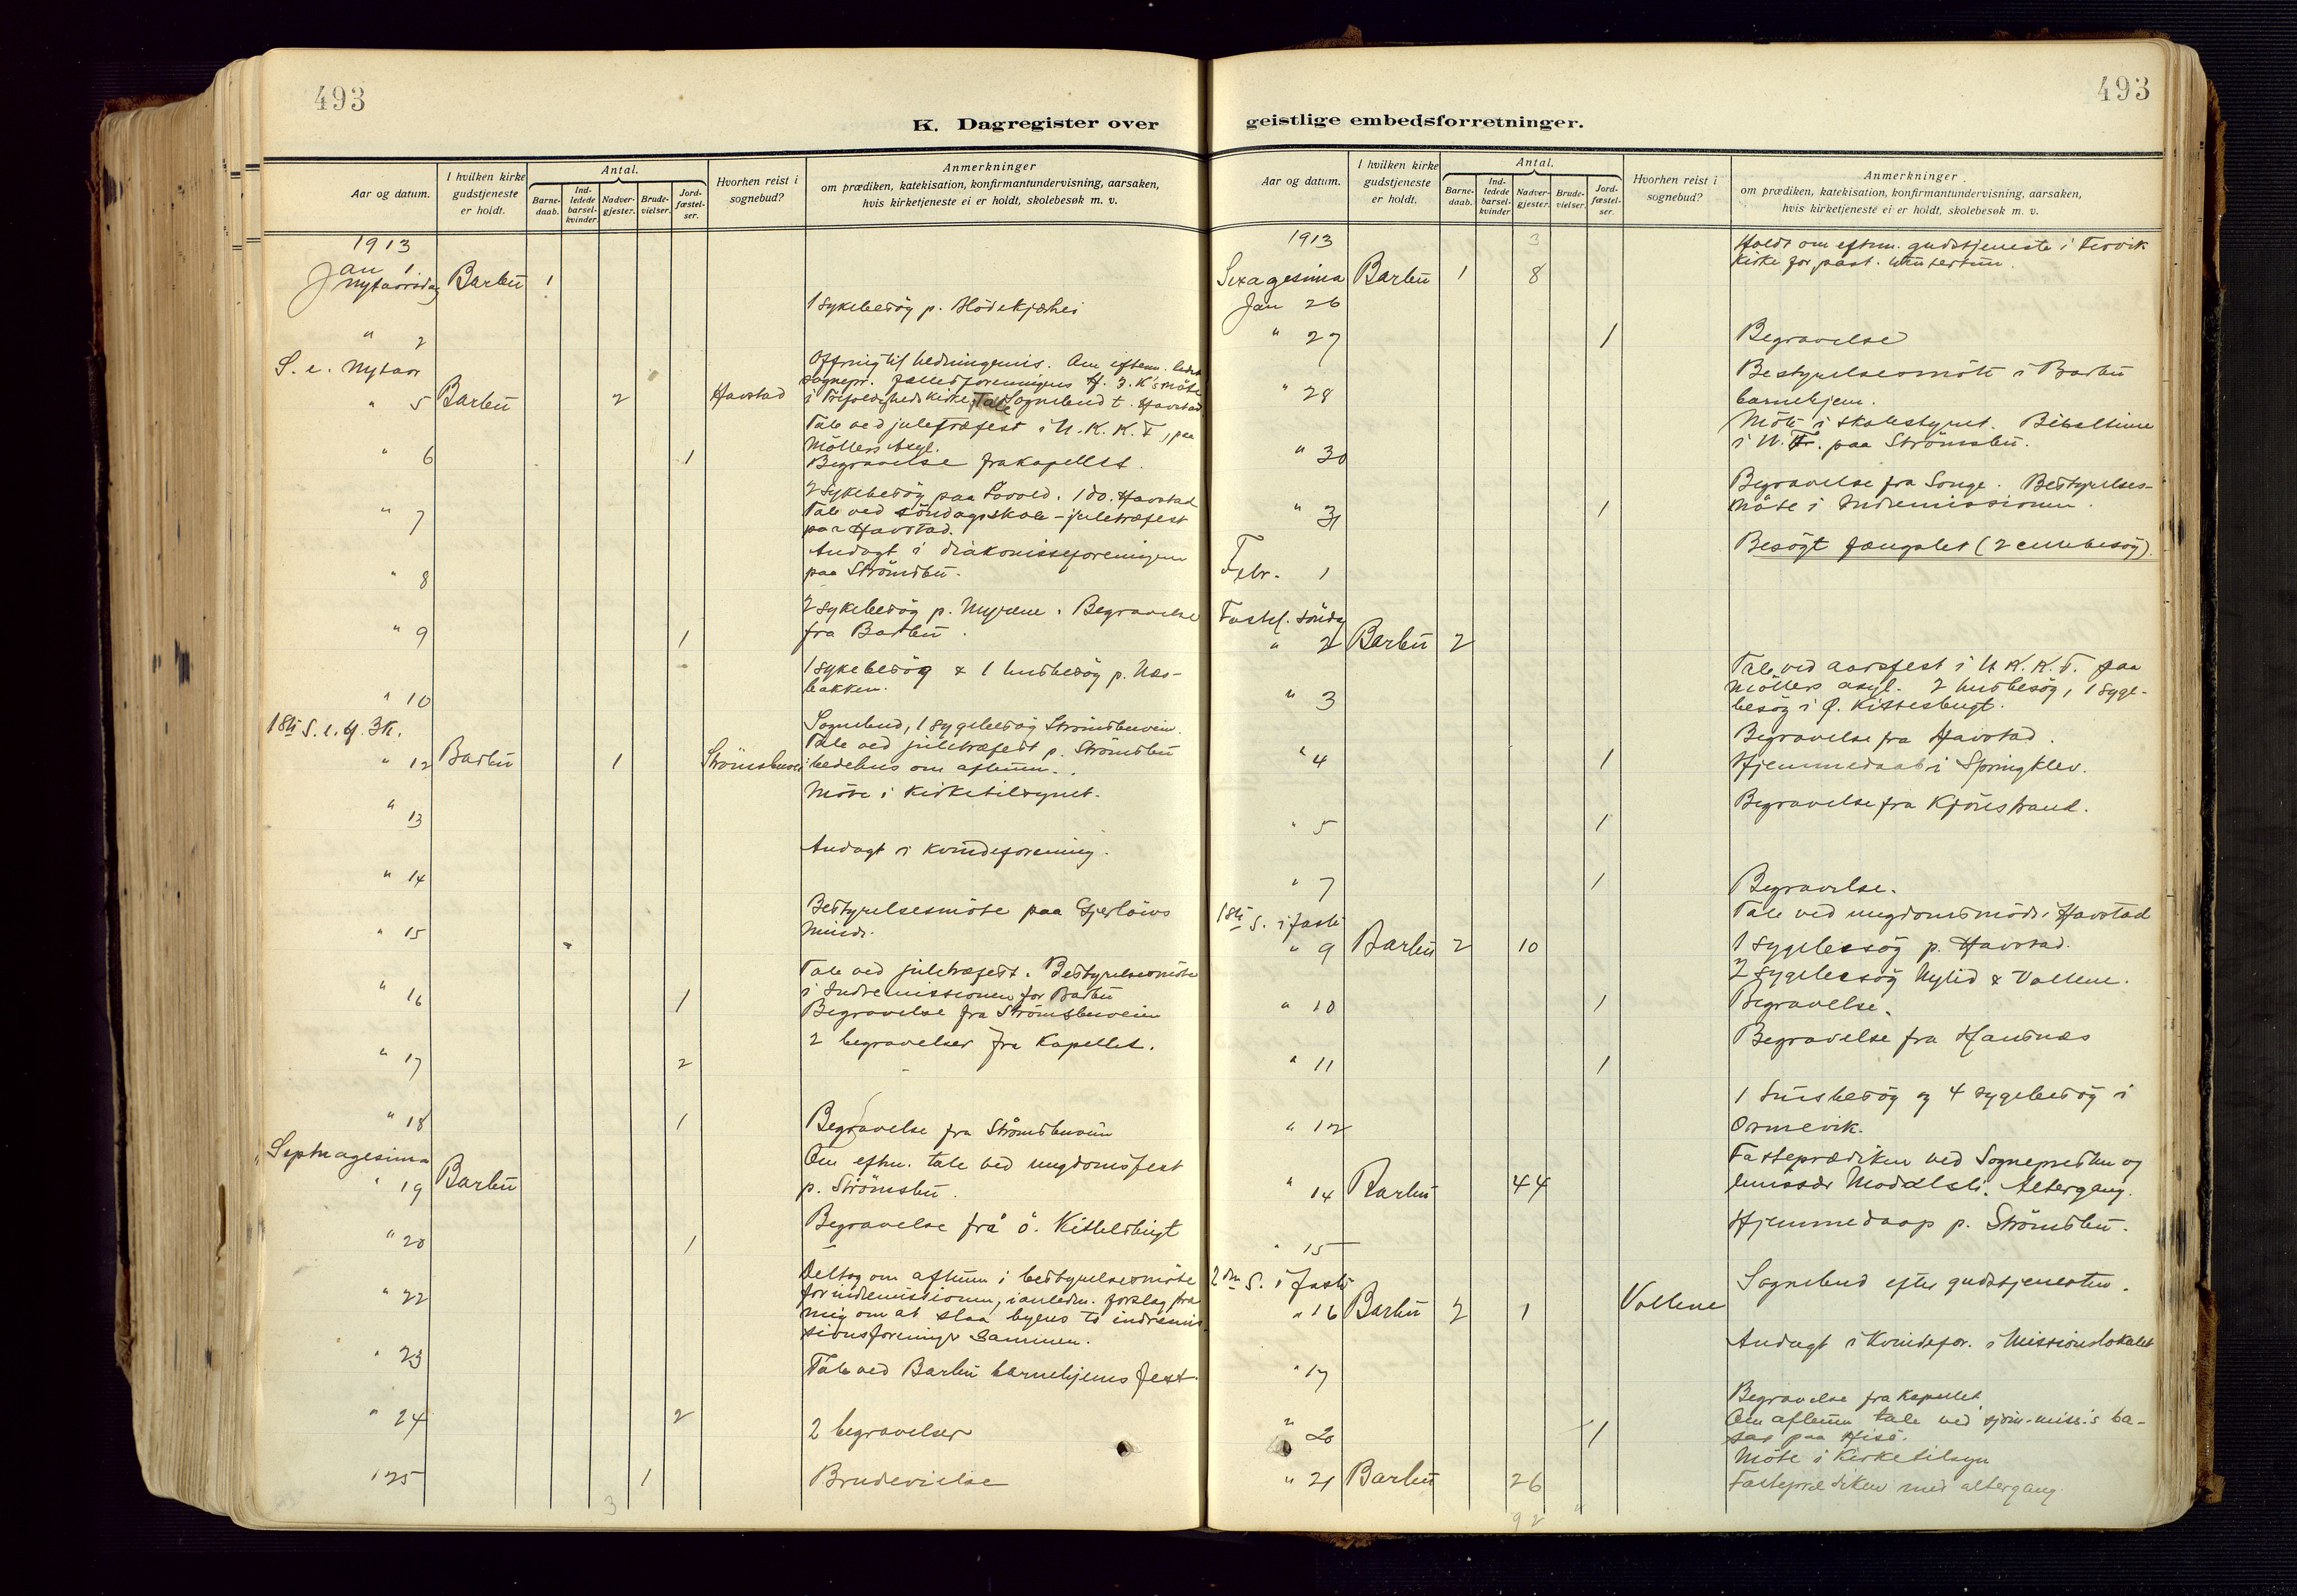 493
K. Dagregister over
Aar og datum.
I hvilken kirke gudstjeneste er holdt.
Antal.
Barne-daab.
Ind-ledede barsel-kvinder.
Nadver-gjester.
Brude-vielser.
Jord-fæstel-ser.
Hvorhen reist i sognebud?
Anmerkninger
om prædiken, katekisation, konfirmantundervisning, aarsaken,
hvis kirketjeneste ei er holdt, skolebesøk m. v.
1913
Jan 1
Nytaarsdag Barbu 1
1 sykebesög p.
" 2
S. e. Nytaar
Offring til hedningemis. Om eftem. ledet
sognepr. fællesforeningens
" 5 Barbu 2 Havstad i Trefoldighedskirke, Tale Sognebud t. Havstad
Tale ved juletræfest i U. K. K. F., paa
Möllers Asyl.
" 6 1 Begravelse fra kapellet.
2 sykebesög paa . 1 do. Havstad
" 7 Tale ved söndagsskole-juletræfest
paa Havstad.
Andagt i diakonisseforeningen
" 8 paa Strömsbu.
2 sykebesög p. Myrene. Begravelse
" 9 1 fra Barbu.
1 sykebesög & 1 husbesög p. Næs-
" 10 bakken.
1ste S. e. H. 3 K.
Sognebud, 1 sygebesög Strömsbuvein.
Tale ved juletræfest p. Strömsbu
" 12 Barbu 1 Strömsbuvei bedehus om aftenen.
Möte i Kirketilsynet.
" 13
Andagt i kvindeforening.
" 14
Bestyrelsesmöte paa
" 15 Minde.
Tale ved juletræfest. Bestyrelsesmöte
" 16 1 i Indremissionen for Barbu
Begravelse fra Strömsbuveien
2 begravelser fra Kapellet.
" 17 2
" 18 1 Begravelse fra Strömsbuveien
Septuagesima
Om eftm. tale ved ungdomsfest
" 19 Barbu p. Strömsbu.
Begravelse fra ö. Kittelsbugt
" 20 1
Deltog om aftenen i bestyrelsesmöte
" 22 for indremissionen, i anledn. forslag fra
mig om at slaa byens to indremis-
sionsforeninger sammen.
" 23
Tale ved Barbu barnehjems fest.
" 24 2 2 begravelser
" 25 1 Brudevielse
3
493
geistlige embedsforretninger.
Aar og datum.
I hvilken kirke gudstjeneste er holdt.
Antal.
Barne-daab.
Ind-ledede barsel-kvinder.
Nadver-gjester.
Brude-vielser.
Jord-fæstel-ser.
Hvorhen reist i sognebud?
Anmerkninger
om prædiken, katekisation, konfirmantundervisning, aarsaken,
hvis kirketjeneste ei er holdt, skolebesøk m. v.
1913 3
Holdt om eftm. gudstjeneste i
kirke for past.
Sexagesima Barbu 1 8
Jan 26
" 27 1 Begravelse
Bestyrelsesmöte i Barbu
" 28 barnehjem.
Möte i skolestyret. Bibeltime
" 30 i U. F. paa Strömsbu.
Begravelse fra Songe. Bestyrelses-
" 31 1 möte i Indremissionen.
Besögt fængslet (2 cellebesög).
Febr. 1
Fastel. Sönda
" 2 Barbu 2
Tale ved aarsfest i U. K. K. F. paa
" 3 Möllers asyl. 2 husbesög, 1 syge-
besög i Ø. Kittelsbugt.
Begravelse fra Havstad.
" 4 1 Hjemmedaab i Springklev.
Begravelse fra
" 5 1
" 7 1 Begravelse.
1ste S. i Faste
Tale ved ungdomsmöde i Havstad
" 9 Barbu 2 10 1 sygebesög p. Havstad.
2 sygebesög Nylid & Vollene.
" 10 1 Begravelse.
Begravelse fra
" 11 1
1 husbesög og 4 sygebesög i
" 12
Fasteprædiken ved Sognepresten og
" 14 Barbu 44 Altergang.
Hjemmedaap p. Strömsbu.
" 15
2den S. i Faste
Sognebud efter gudstjenesten.
" 16 Barbu 2 1 Vollene
Andagt i Kvindefor. i Missionslokalet
" 17
Begravelse fra Kapellet.
Om aftenen tale ved sjöm.-miss.s ba-
" 20 1 sar paa Hisö.
Möte i Kirketilsyn
" 21 Barbu 26 Fasteprædiken med altergang
92